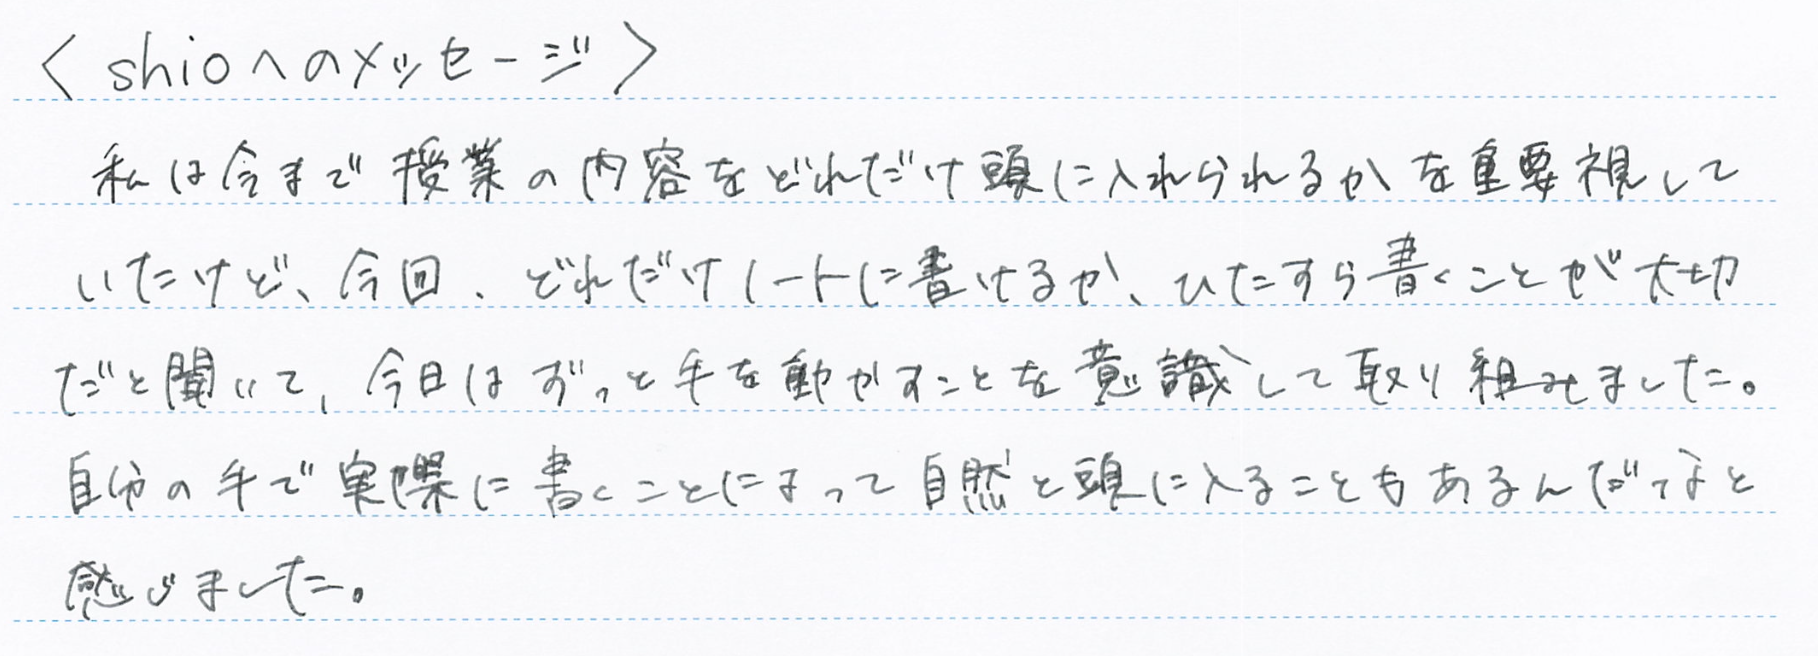 〈shioへのメッセージ〉
私は今まで授業の内容をどれだけ頭に入れられるかを重要視して
いたけど、今回、どれだけノートに書けるか、ひたすら書くことが大切
だと聞いて、今日はずっと手を動かすことを意識して取り組みました。
自分の手で実際に書くことによって自然と頭に入ることもあるんだなと
感じました。